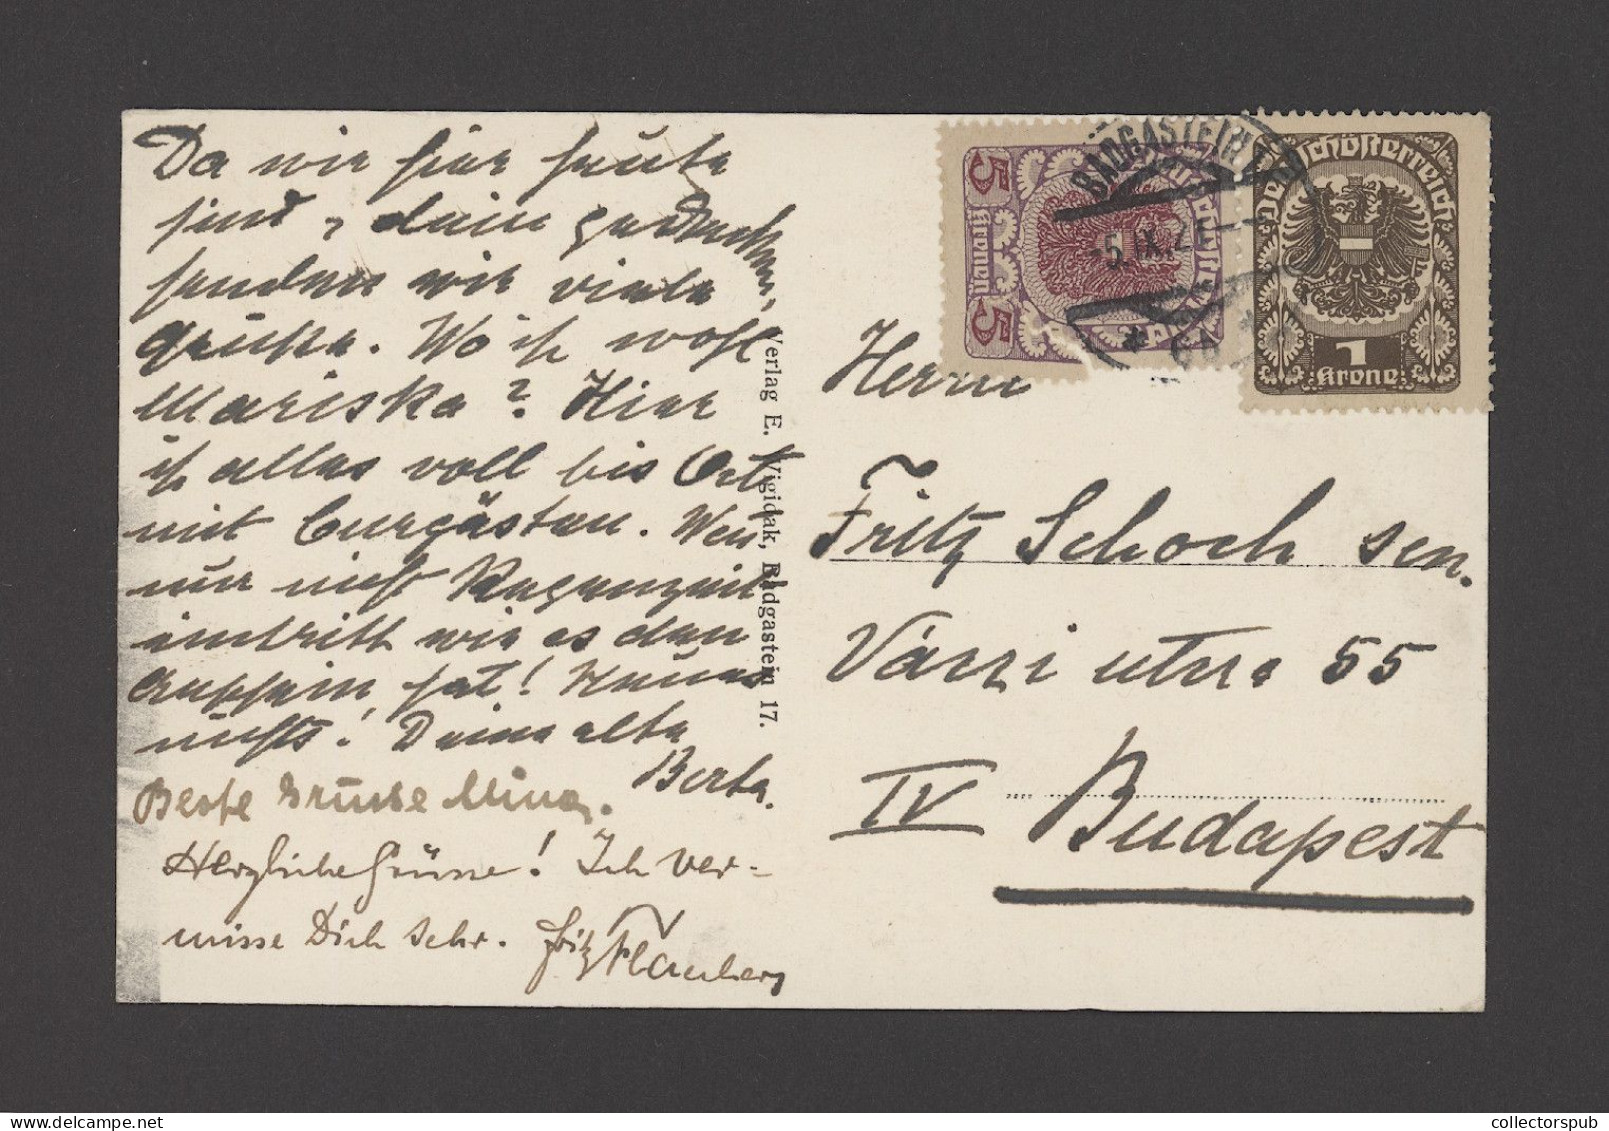 Da wir hier heute
sind, dein gedachten,
senden wir viele
Grüsse. Wo ist wohl
Mariska? Hier
ist alles voll bis Ort
mit Curgästen. Wenn
nur nicht Regenzeit
eintritt wie es den
Anschein hat! Neues
nichts! Deine alte
Berta.
Beste Grüsse Mina.
Herzliche Grüsse! Ich ver-
misse Dich sehr. Fritz
Verlag E. Vigidak, Badgastein 17.
BADGASTEIN
5.IX.2
5 5
Kronen
Deutschösterreich
1
Krone
Herrn
Fritz Schoch sen.
Váczi utcza 55
IV Budapest
collectorspub